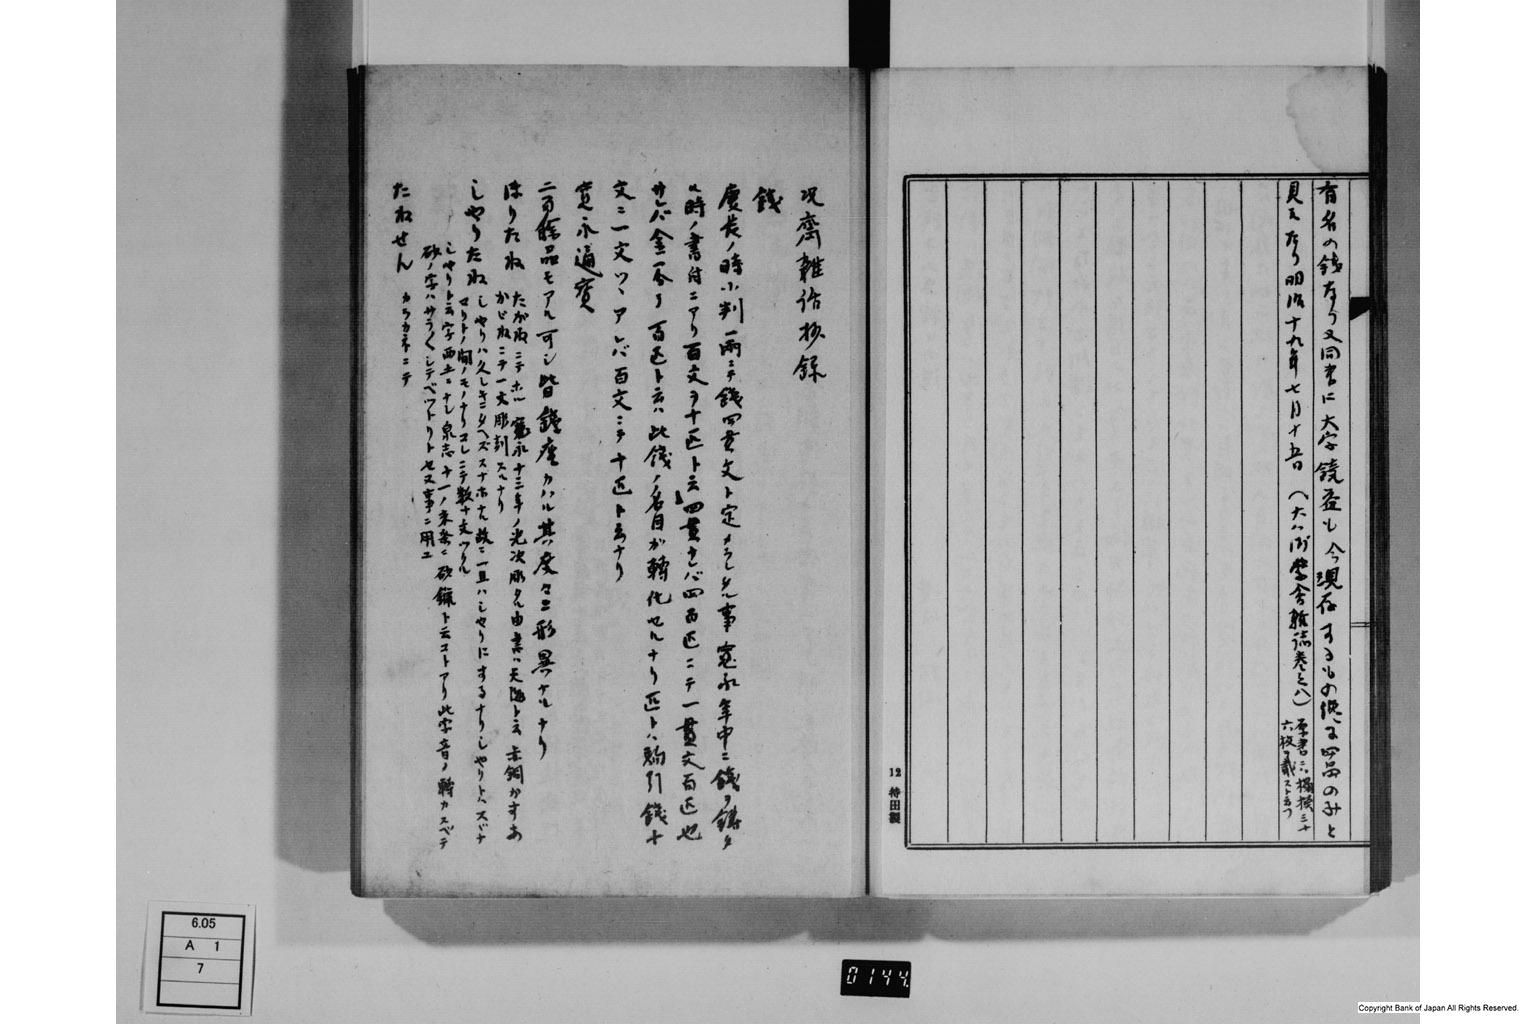 有名の銭なり又同書に大字鏡益も今現存するもの僅に四品のみと
見えたり明治十九年七月十五日（大八洲学会雑誌巻之八）
原書ニハ搨模三十
六枚ヲ載ストふつ
12 持田製
況齋雑話抄録
銭
慶長ノ時小判一両ニテ銭四貫文ト定メラレタル事寛永年中ニ銭ヲ鋳タ
ル時ノ書付ニアリ百文ヲ十匹ト云四貫ナレバ四百匹ニテ一貫文百匹也
サレバ金一分ヲ百匹ト云ハ此銭ノ名目が転化セルナリ匹トハ駒引銭十
文ニ一文ツヽアレバ百文ニテ十匹ト云ナリ
寛永通寳
二百餘品モアル可シ皆銭座カハル其度々ニ形異ナルナリ
ほりたね
たがねニテホル寛永十三年ノ光次彫タル由書ハ天海ト云赤銅かすあ
かどねニテ一文彫刻スルナリ
しやりたね
しやりハ久しキニタヘズスナホナル故ニ一旦ハしやりにするナリしやりトハスバナ
セリトノ間ノモノナリコレニテ数十文ツクル
しやりト云字西土ニナシ泉志十一ノ末条ニ砂鑞ト云コトアリ此字音ノ転カスベテ
砂ノ字ハサラ〱シテベツトリトセヌ事ニ用エ
たねせん
カラカネニテ
6.05
A 1
7
0144.
Copyright Bank of Japan All Rights Reserved.